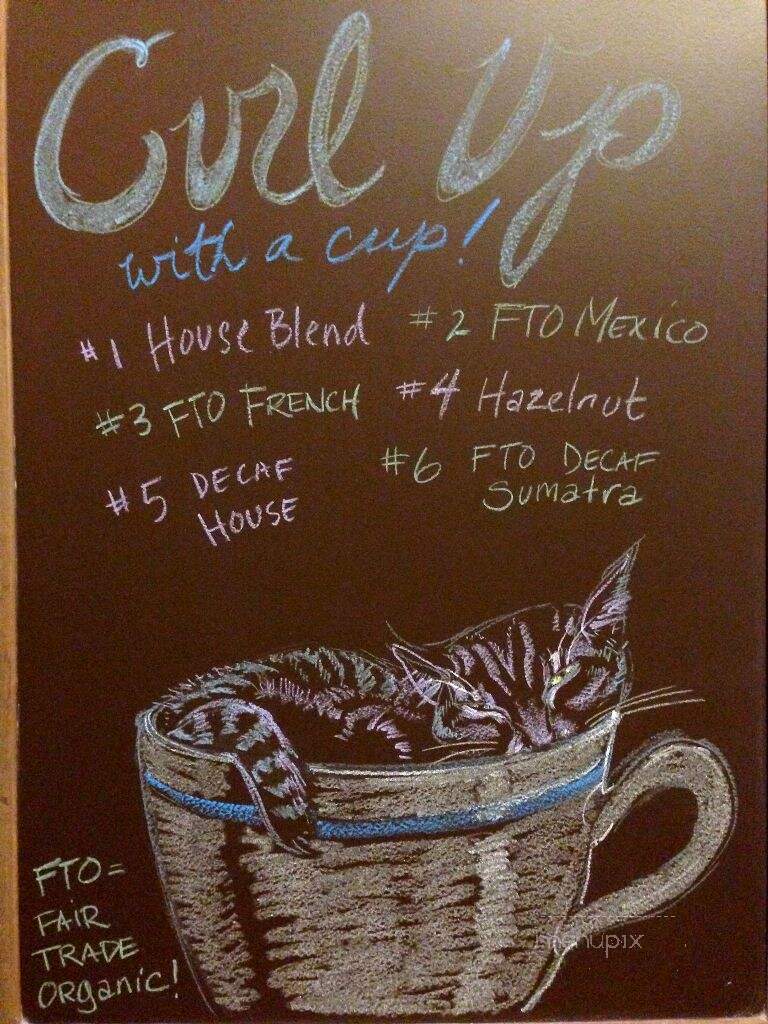 Curl Up
with a cup!
#1 House Blend
#2 FTO Mexico
#3 FTO FRENCH
#4 Hazelnut
#5 DECAF
HOUSE
#6 FTO DECAF
Sumatra
FTO=
FAIR
TRADE
Organic!
menupix